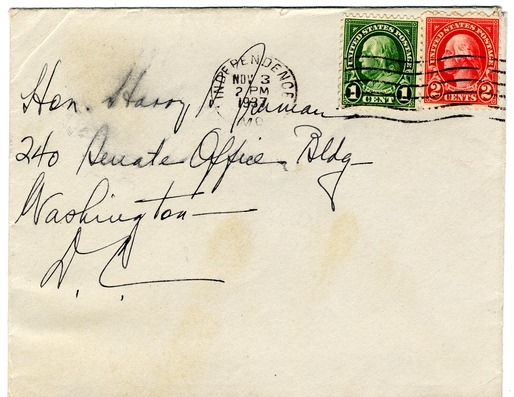 UNITED STATES POSTAGE
1 CENT 1
UNITED STATES POSTAGE
2 CENTS 2
INDEPENDENCE
NOV 3
2 PM
1937
MO.
Hon. Harry S. Truman
240 Senate Office Bldg
Washington
D. C.